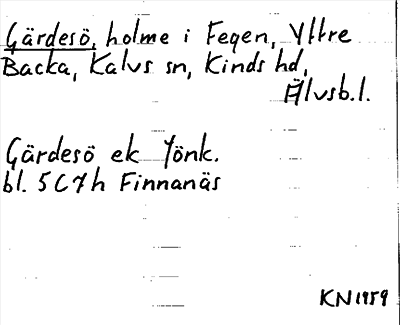 Gärdesö, holme i Fegen, Yttre
Backa, Kalvs sn, Kinds hd,
Älvsb.l.
Gärdesö ek Jönk.
bl. 5C7h Finnanäs
KN1959